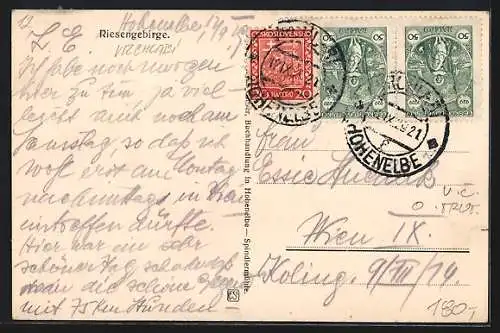 13
Hohenelbe
Riesengebirge.
L. E.
Ich habe noch morgen
hier zu tun ja viel-
leicht auch noch am
Samstag, so daß ich
wohl erst am Montag
nachmittags in Wien
eintreffen dürfte.
Hier war ein sehr
schöner Tag, schade
die schöne
mit 75 km Stunden-
Buchhandlung in Hohenelbe - Spindlermühle.
ČESKOSLOVENSKO
20
50
50
HOHENELBE
HOHENELBE
Frau
Wien IX.
Koling. 9/III/14.
180,-